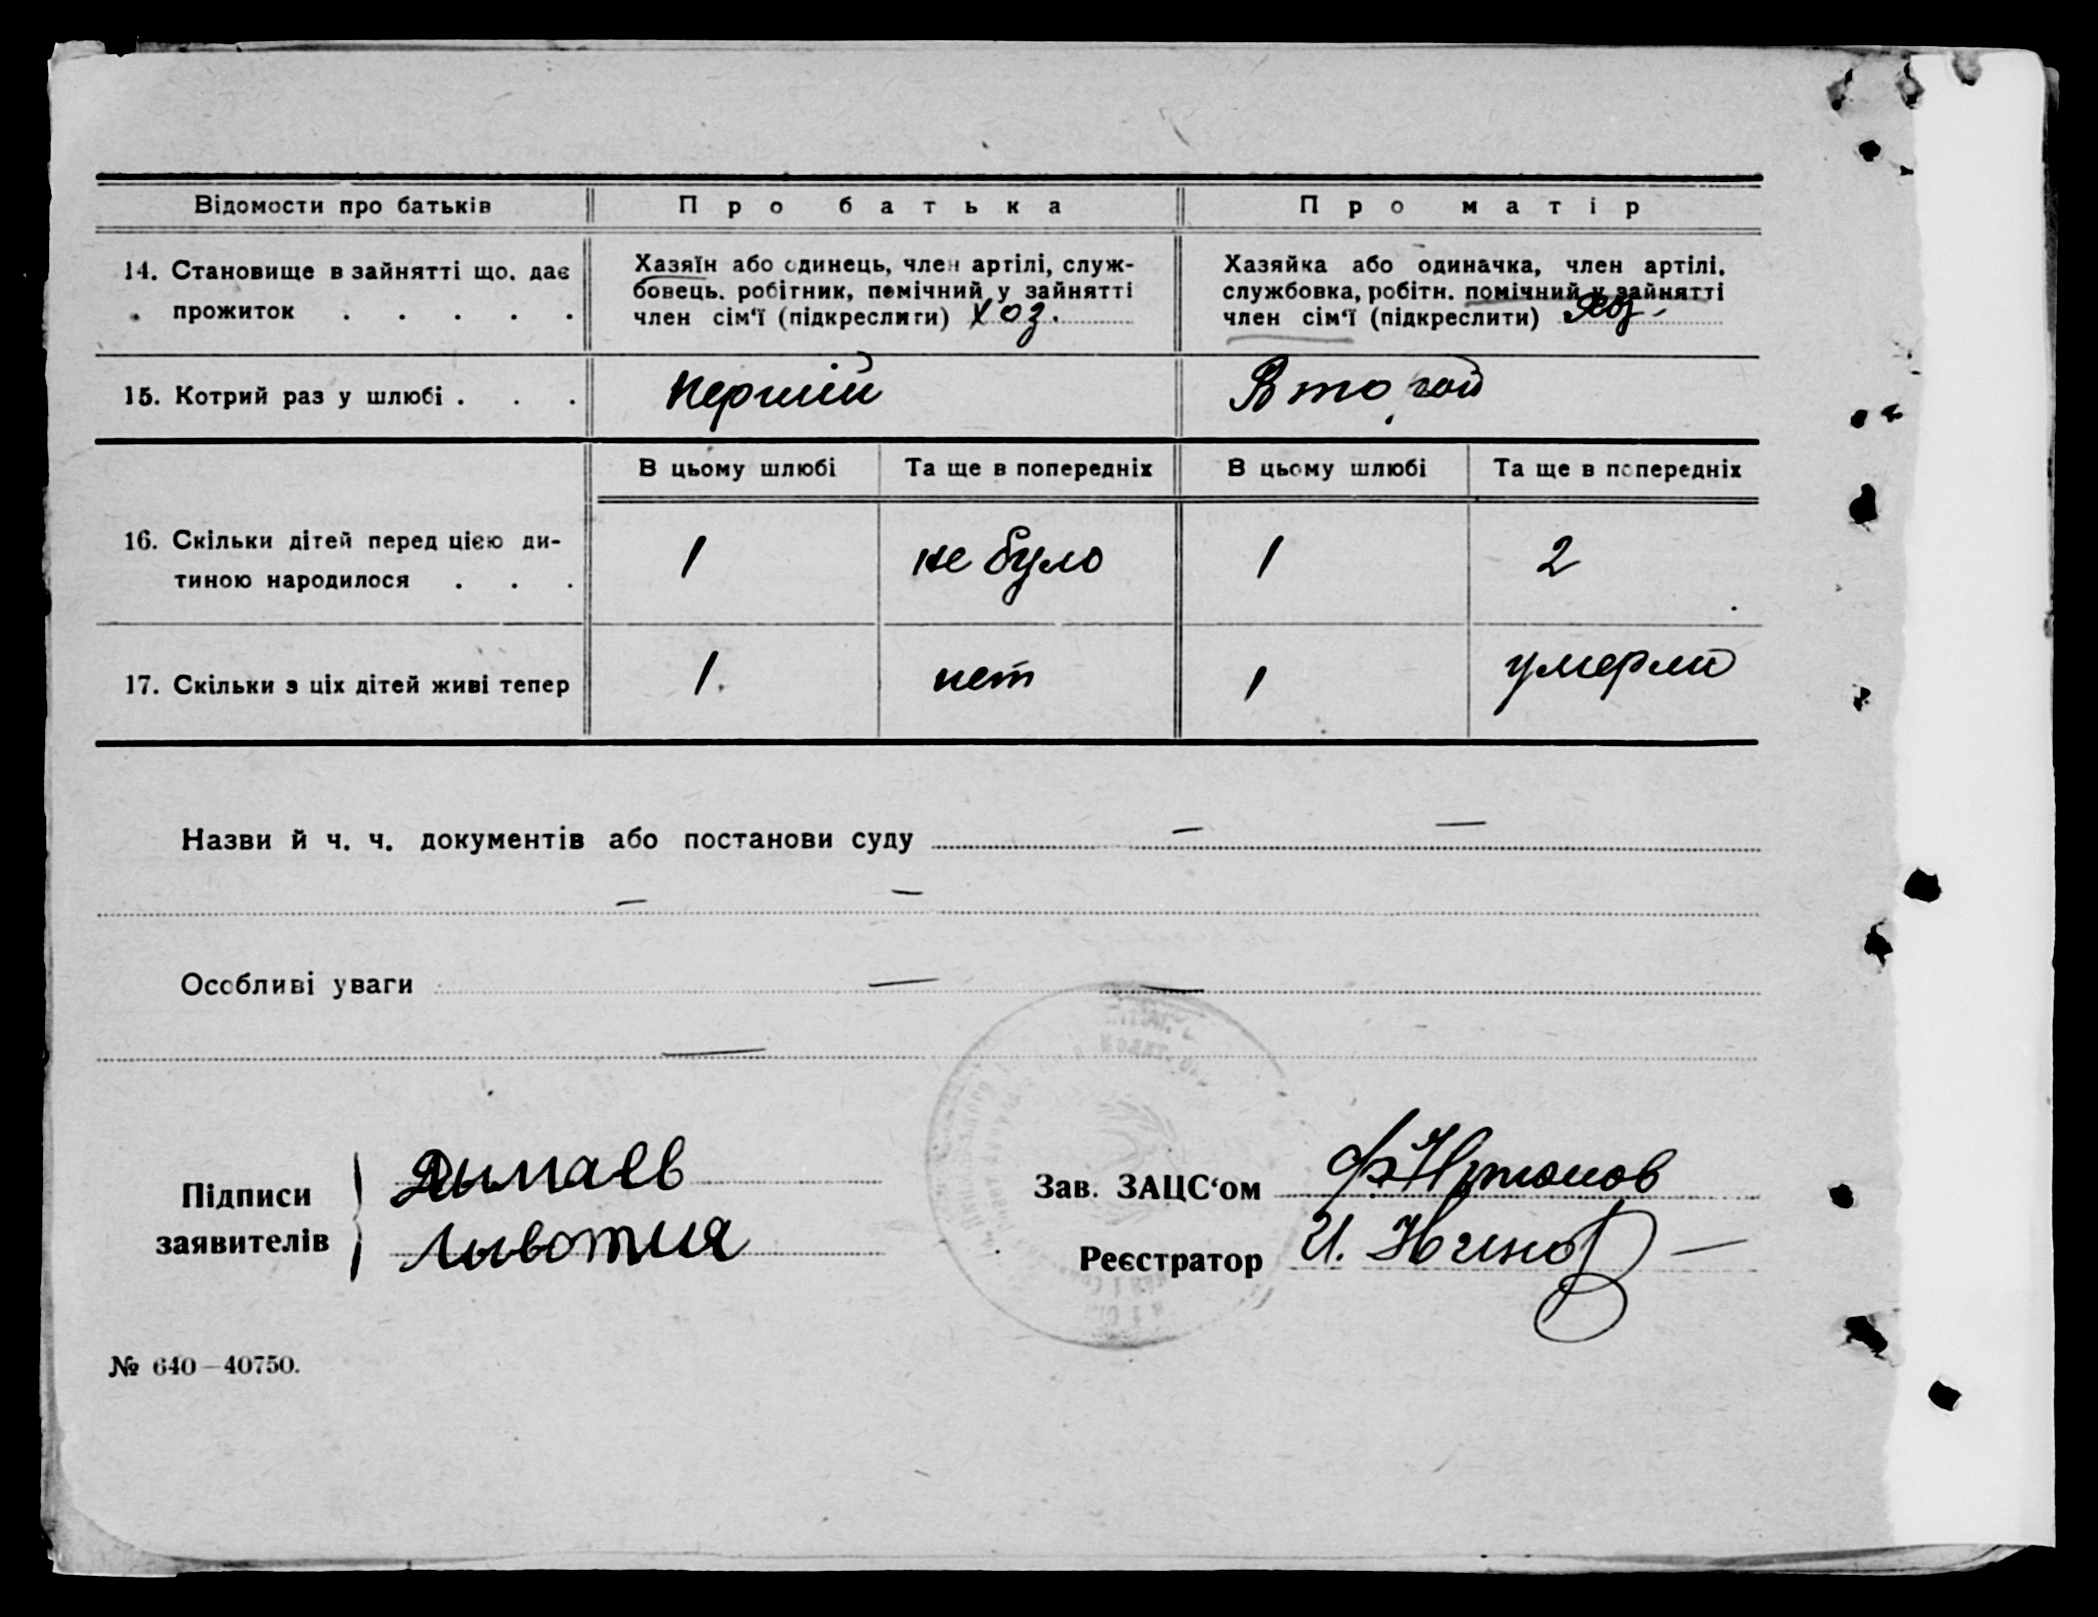 Відомости про батьків Про батька Про матір
14. Становище в зайнятті що. дає
прожиток . . . . .
Хазяїн або одинець, член артілі, служ-
бовець. робітник, помічний у зайнятті
член сім'ї (підкреслити) хоз.
Хазяйка або одиначка, член артілі.
службовка, робітн. помічний у зайнятті
член сім'ї (підкреслити)
15. Котрий раз у шлюбі . . . перший Второй
В цьому шлюбі Та ще в попередніх В цьому шлюбі Та ще в попередніх
16. Скільки дітей перед цією ди-
тиною народилося . . . 1 не було 1 2
17. Скільки з ціх дітей живі тепер 1. нет 1 умерли
Назви й ч. ч. документів або постанови суду — —
— —
Особливі уваги — —
—
Підписи
заявителів
Зав. ЗАЦС'ом
Реєстратор И.
№ 640—40750.